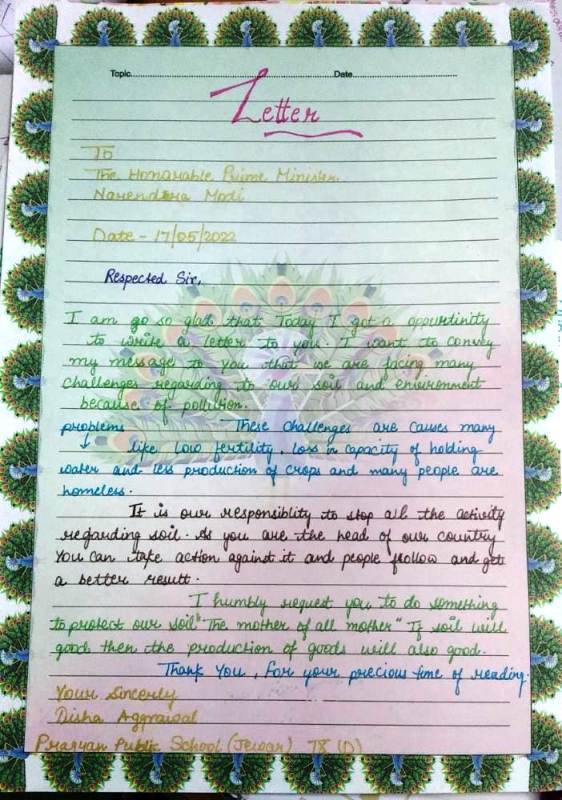 Topic........................Date........................
Letter
To
The Honarable Prime Minister
Narendra Modi
Date - 17/05/2022
Respected Sir,
I am go so glad that Today I got a oppurtinity
to write a letter to you. I want to convey
my message to you that we are facing many
challenges regarding to our soil and environment
because of pollution.
problems These challenges are causes many
↓ like Low fertility, loss in capacity of holding
water and less production of crops and many people are
homeless.
It is our responsiblity to stop all the activity
regarding soil. As you are the head of our country
You can take action against it and people follow and get
a better result.
I humbly request you to do something
to protect our soil "The mother of all mother" If soil will
good then the production of goods will also good.
Thank You, For your precious time of reading.
Your Sincerly
Disha Aggrawal
Pragyan Public School (Jewar) 7th (D)